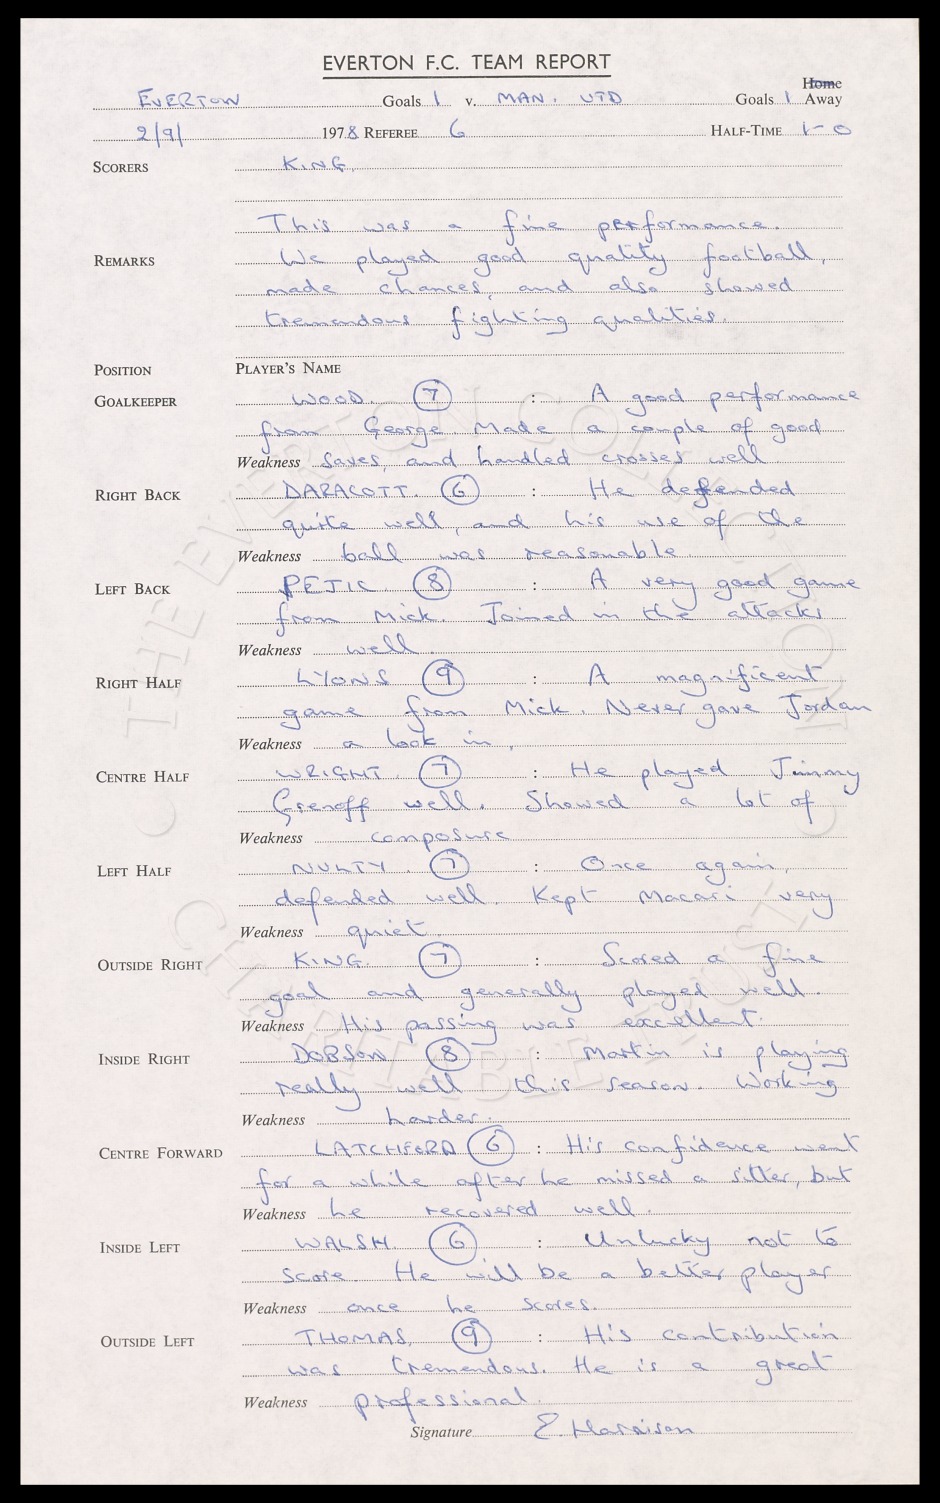 EVERTON F.C. TEAM REPORT
Home
EVERTON Goals 1 v. MAN. UTD Goals 1 Away
2/9/ 1978 REFEREE 6 HALF-TIME 1-0
SCORERS KING.
This was a fine performance.
REMARKS We played good quality football,
made chances, and also showed
tremendous fighting qualities.
POSITION PLAYER'S NAME
GOALKEEPER WOOD. 7 : A good performance
from George. Made a couple of good
Weakness saves, and handled crosses well
RIGHT BACK DARACOTT. 6 : He defended
quite well, and his use of the
Weakness ball was reasonable.
LEFT BACK PEJIC 8 : A very good game
from Mick. Joined in the attacks
Weakness well.
RIGHT HALF LYONS 9 : A magnificent
game from Mick. Never gave Jordan
Weakness a look in.
CENTRE HALF WRIGHT. 7 : He played Jimmy
Grenoff well. Showed a lot of
Weakness composure
LEFT HALF NULTY. 7 : Once again,
defended well. Kept Macari very
Weakness quiet.
OUTSIDE RIGHT KING. 7 : Scored a fine
goal and generally played well.
Weakness His passing was excellent.
INSIDE RIGHT DOBSON 8 : Martin is playing
really well this season. Working
Weakness harder.
CENTRE FORWARD LATCHFORD 6 : His confidence went
for a while after he missed a sitter, but
Weakness he recovered well.
INSIDE LEFT WALSH. 6 : Unlucky not to
score. He will be a better player
Weakness once he scores.
OUTSIDE LEFT THOMAS. 9 : His contribution
was tremendous. He is a great
Weakness professional.
Signature E. Harrison
© THE EVERTON COLLECTION CHARITABLE TRUST